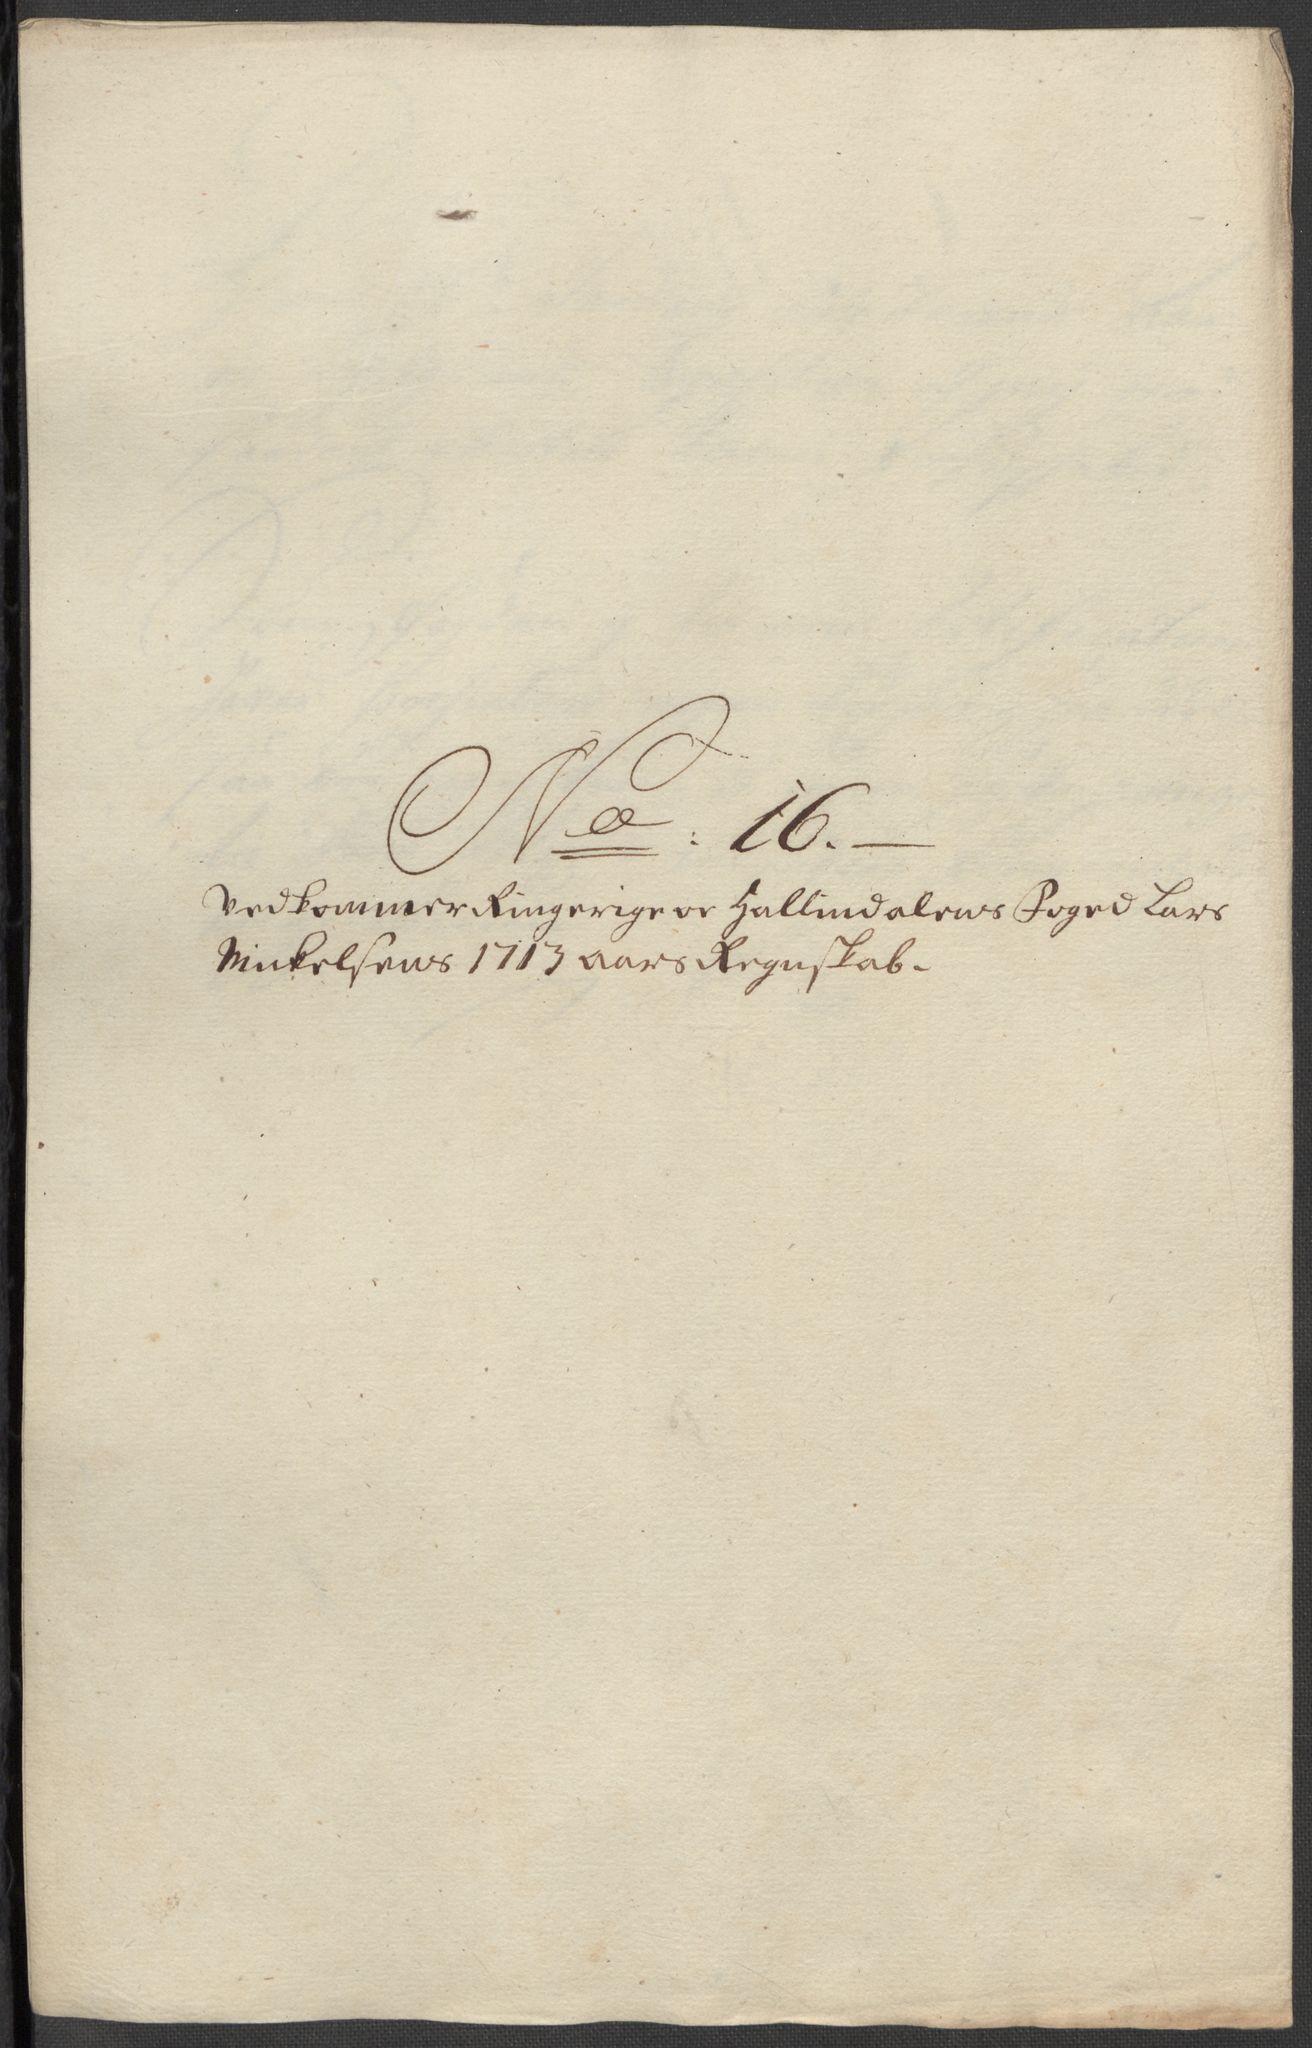 No: 16. —
Vedkommer Ringerige oc Hallingdalens Foged Lars
Mickelsens 1713 aars Regnskab.